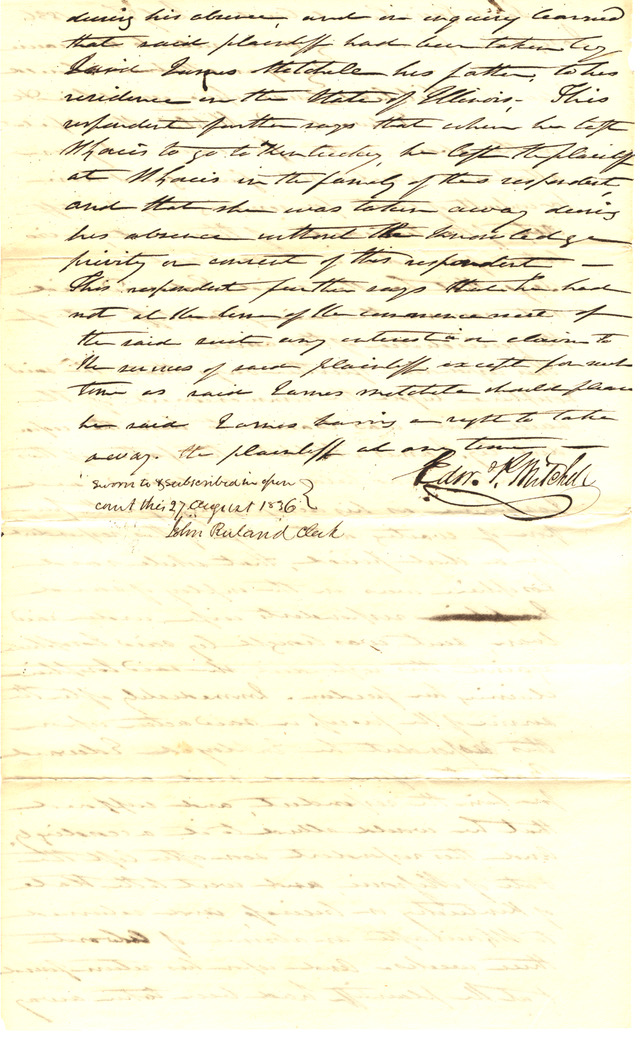 during his absence, and on inquiry learned
that said plaintiff had been taken by
said James Mitchell his father, to his
residence in the State of Illinois. This
respondent further says that when he left
St Louis to go to Kentucky, he left the plaintiff
at St Louis in the family of this respondent,
and that she was taken away during
his absence without the knowledge
privity or consent of this respondent —
This respondent further says that he had
not at the time of the commencement of
the said suit any interest in or claim to
the services of said plaintiff except for such
time as said James Mitchell should please
he said James having a right to take
away the plaintiff at any time —
Edw. Mitchell
sworn to & subscribed in open
court this 27 August 1836
John Ruland Clerk